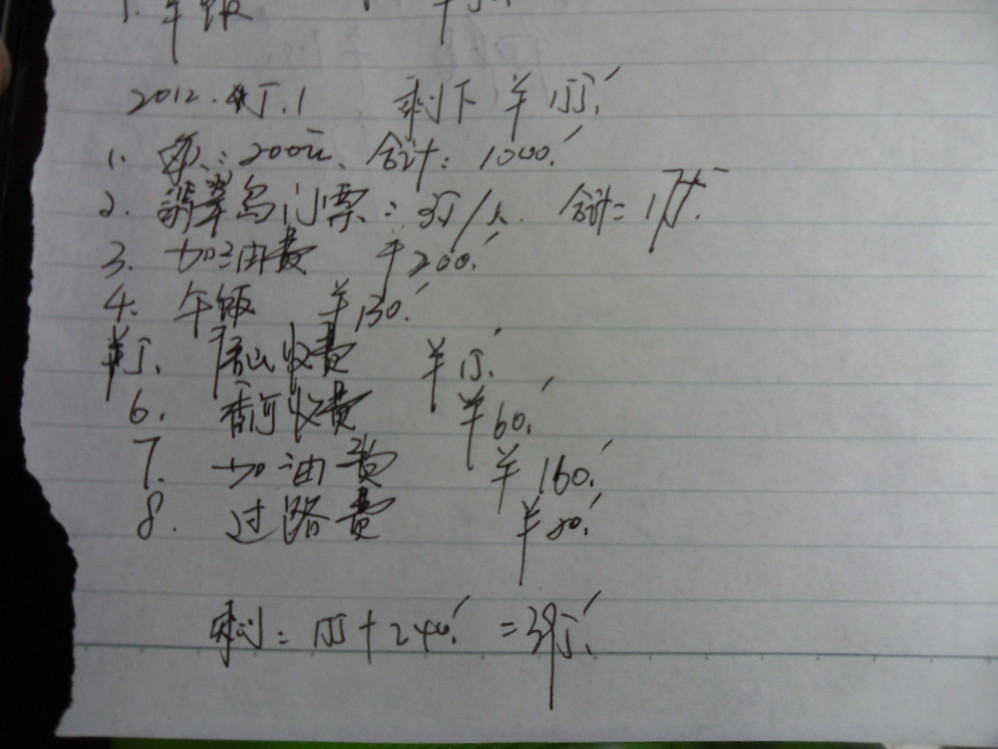 1. 午饭
2012.5.1 剩下 ¥155.-
1. 每人:200元、合计:1000.-
2. 翡翠岛门票:35/人. 合计:175.-
3. 加油费 ¥200.-
4. 午饭 ¥130.-
5. 唐山收费 ¥15.-
6. 香河收费 ¥60.-
7. 加油费 ¥160.-
8. 过路费 ¥20.-
剩:155+240.-=395.-